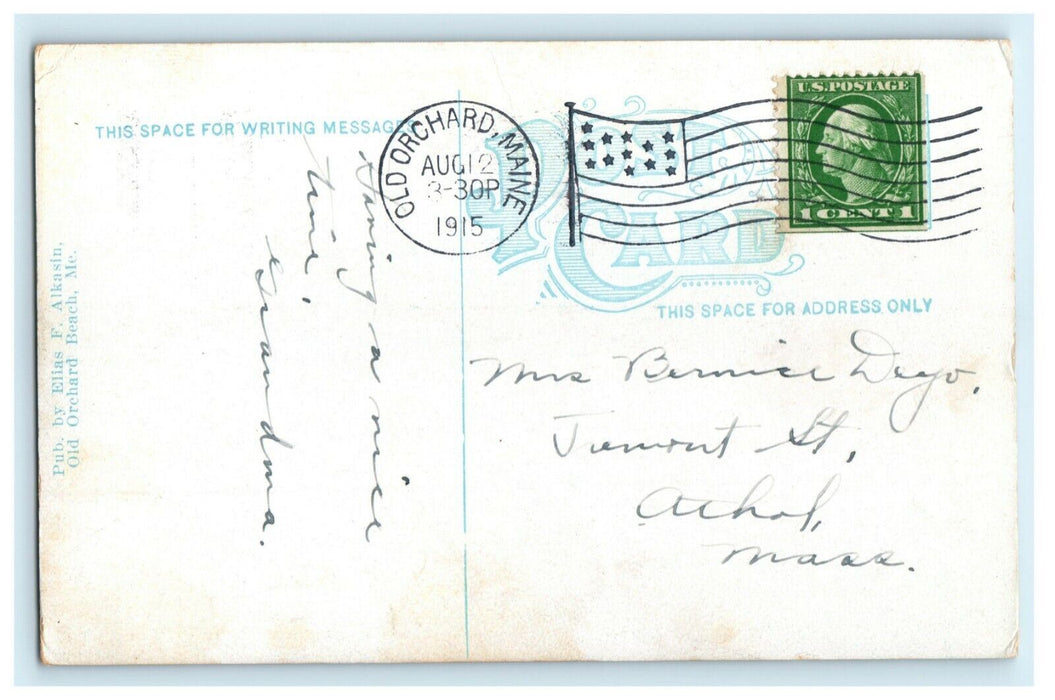 THIS SPACE FOR WRITING MESSAGES
OLD ORCHARD, MAINE
AUG 12
3-30P
1915
U.S. POSTAGE
1 CENT 1
POST CARD
THIS SPACE FOR ADDRESS ONLY
Having a nice
time.
Grandma.
Mrs Bernice Deyo,
Tremont St,
Athol,
Mass.
Pub. by Elias F. Alkasin,
Old Orchard Beach, Me.